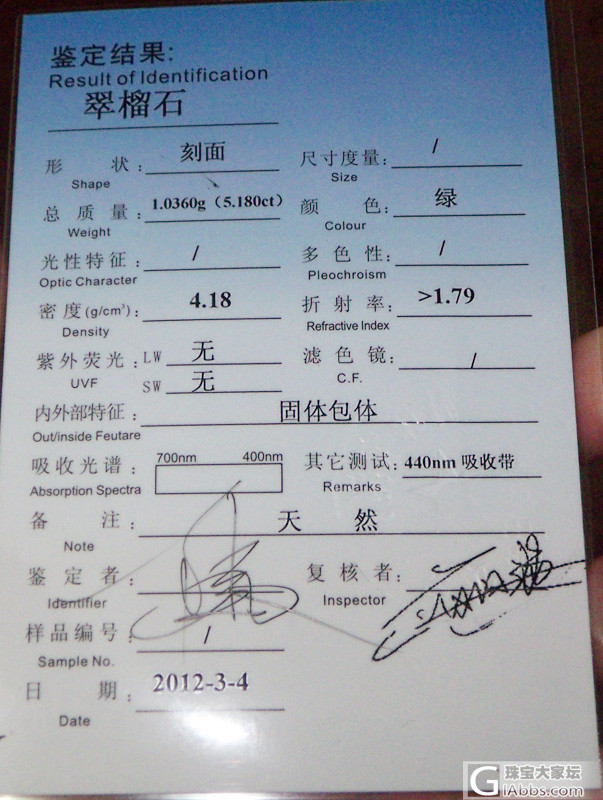 鉴定结果:
Result of Identification
翠榴石
形 状: 刻面 尺寸度量: /
Shape Size
总质量: 1.0360g(5.180ct) 颜 色: 绿
Weight Colour
光性特征: / 多色性: /
Optic Character Pleochroism
密度(g/cm³): 4.18 折射率: >1.79
Density Refractive Index
紫外荧光: LW 无 滤色镜: /
UVF SW 无 C.F.
内外部特征: 固体包体
Out/inside Feutare
吸收光谱: 700nm 400nm 其它测试: 440nm 吸收带
Absorption Spectra Remarks
备 注: 天 然
Note
鉴定者: 复核者:
Identifier Inspector
样品编号: /
Sample No.
日 期: 2012-3-4
Date
珠宝大家坛
GiAbbs.com